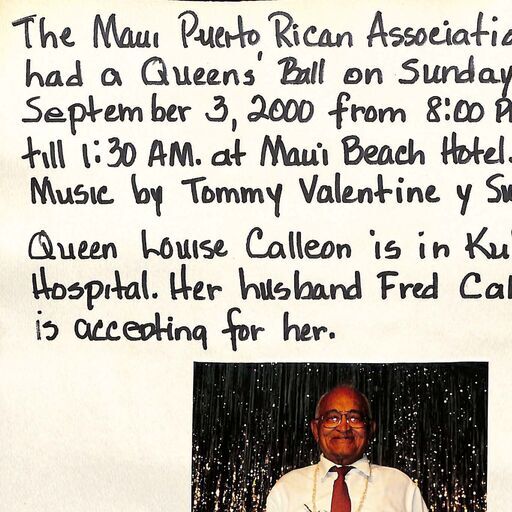 The Maui Puerto Rican Associatio
had a Queens' Ball on Sunday
September 3, 2000 from 8:00 P
till 1:30 AM. at Maui Beach Hotel.
Music by Tommy Valentine y Su
Queen Louise Calleon is in Ku
Hospital. Her husband Fred Cal
is accepting for her.